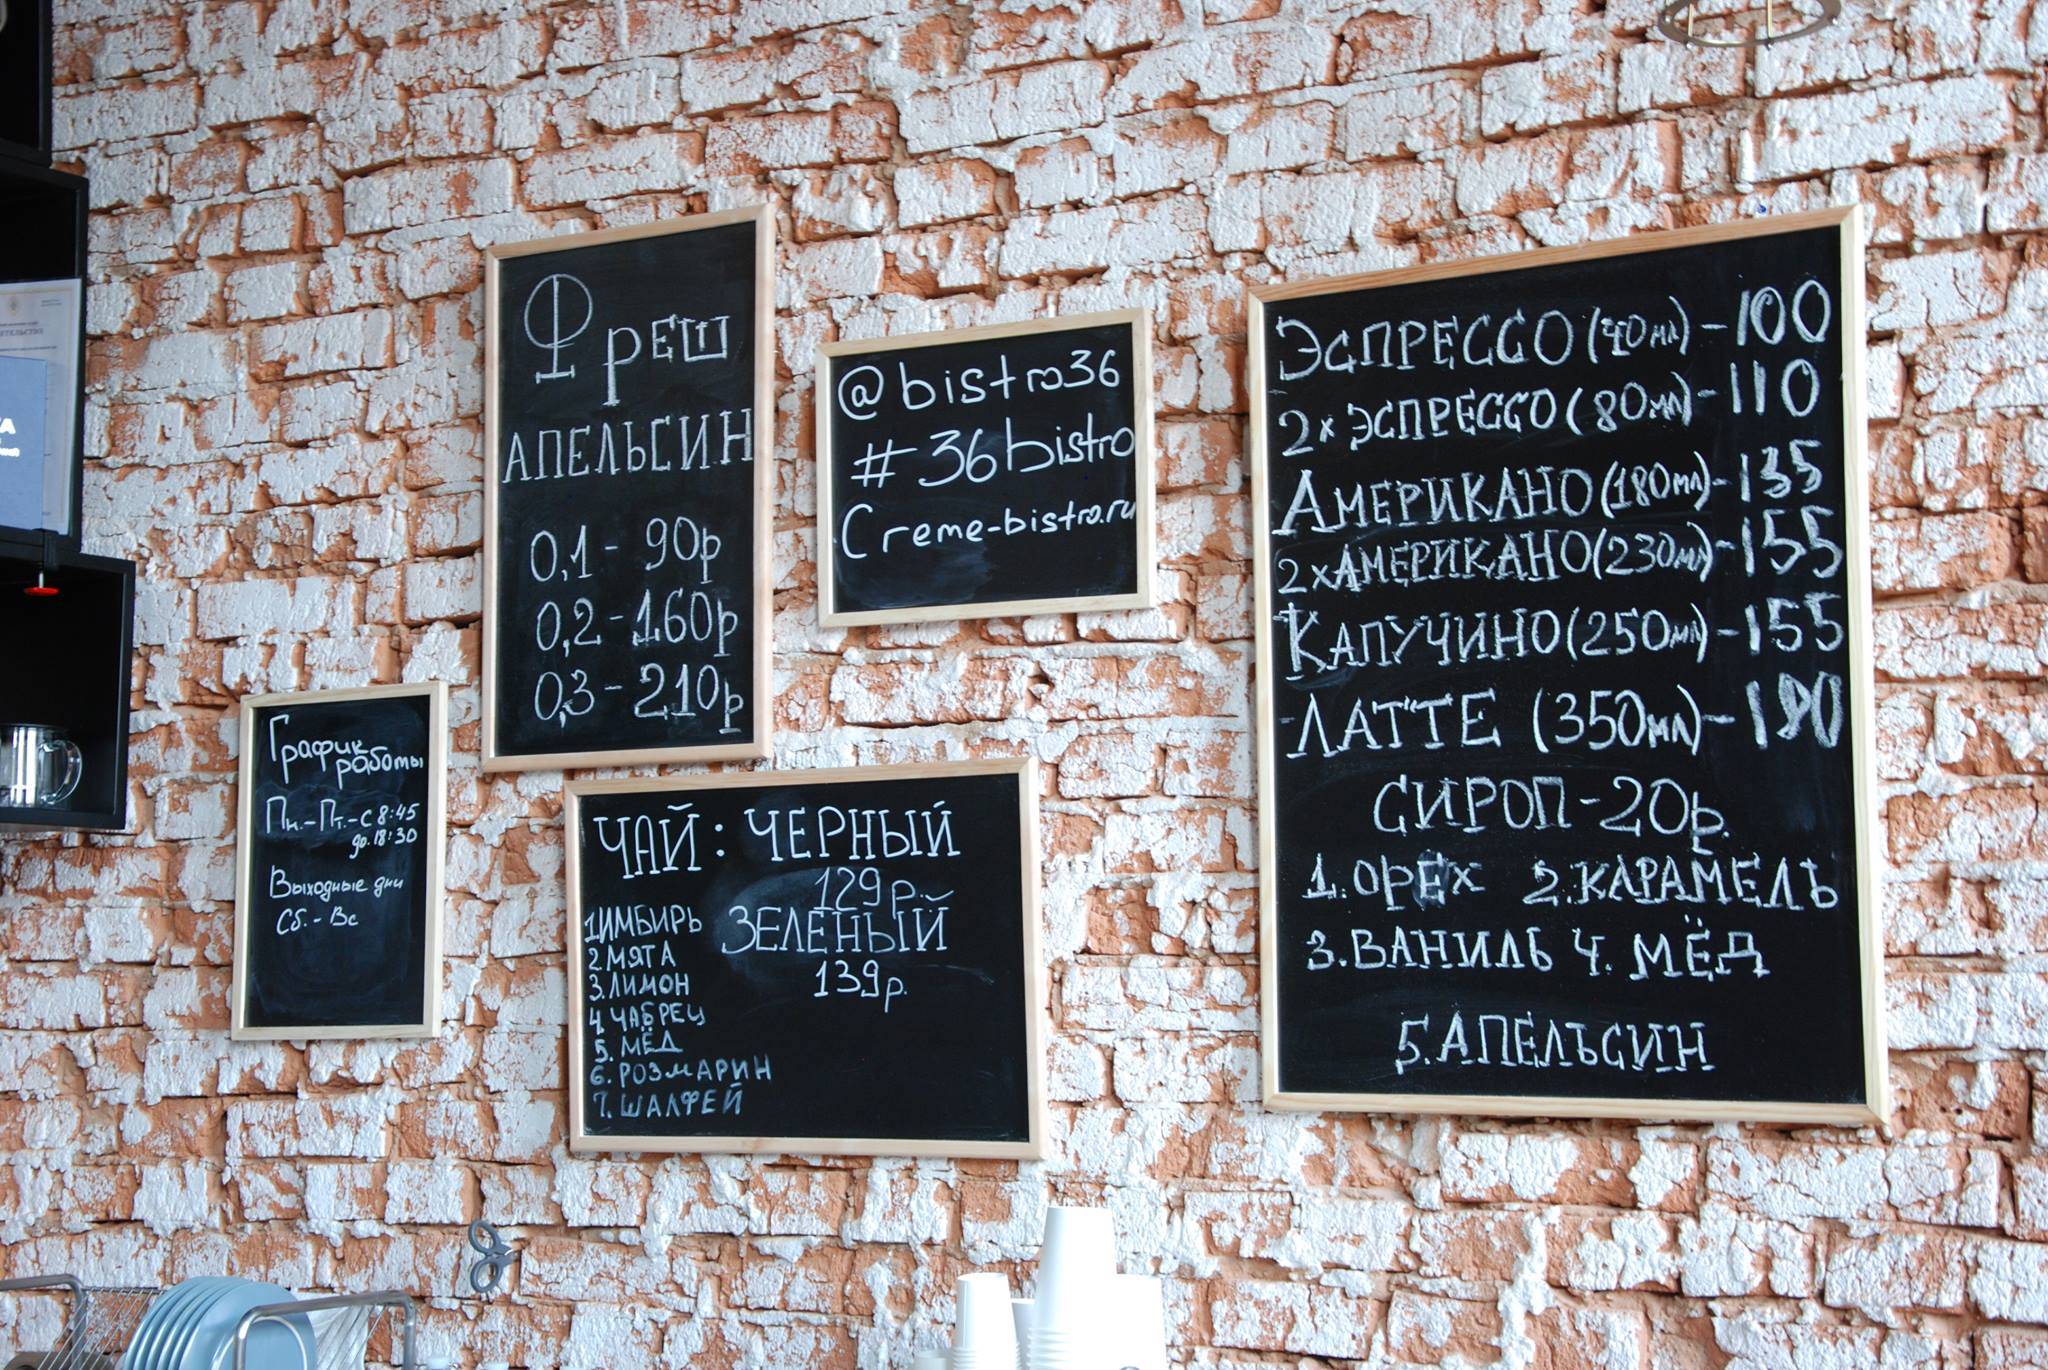 График
работы
Пн.-Пт.-с 8:45
до 18:30
Выходные дни
Сб.-Вс
Фреш
АПЕЛЬСИН
0,1 - 90р
0,2 - 160р
0,3 - 210р
@bistro36
#36bistro
Creme-bistro.ru
ЧАЙ: ЧЕРНЫЙ
129р.
ЗЕЛЕНЫЙ
139р.
1.ИМБИРЬ
2.МЯТА
3.ЛИМОН
4 ЧАБРЕЦ
5. МЁД
6. РОЗМАРИН
7. ШАЛФЕЙ
ЭСПРЕССО (40мл) - 100
2х ЭСПРЕССО (80мл) - 110
АМЕРИКАНО (180мл) - 135
2хАМЕРИКАНО (230мл) - 155
КАПУЧИНО (250мл) - 155
ЛАТТЕ (350мл) - 190
СИРОП - 20р.
1. ОРЕХ 2. КАРАМЕЛЬ
3. ВАНИЛЬ 4. МЁД
5. АПЕЛЬСИН